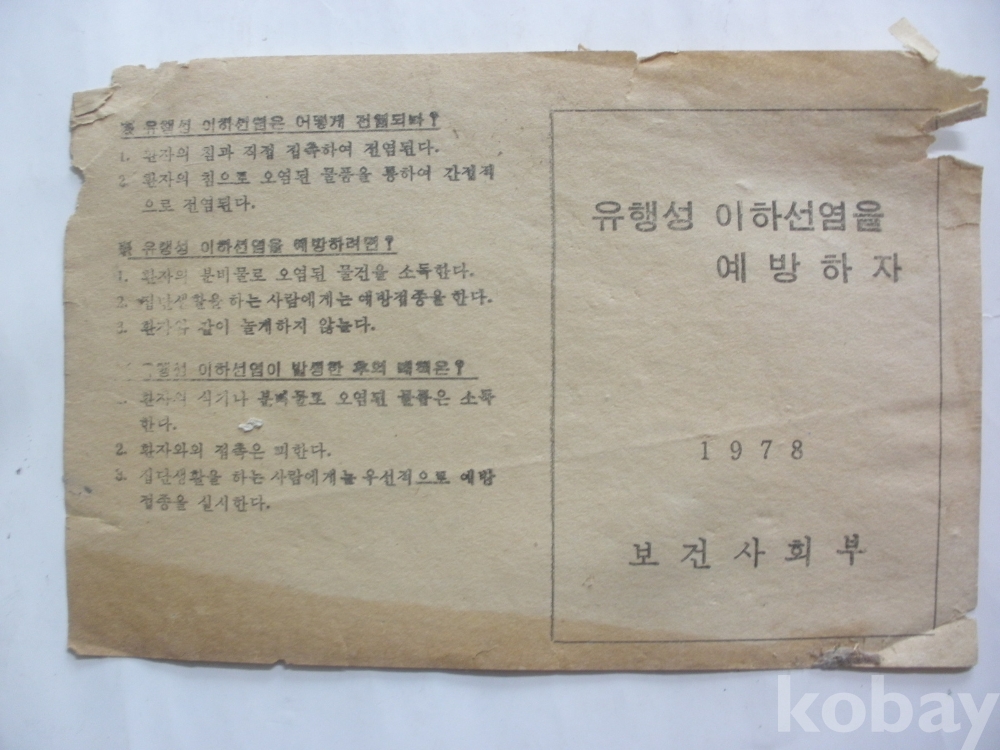 ※ 유행성 이하선염은 어떻게 전염되나?
1. 환자의 침과 직접 접촉하여 전염된다.
2. 환자의 침으로 오염된 물품을 통하여 간접적
으로 전염된다.
※ 유행성 이하선염을 예방하려면?
1. 환자의 분비물로 오염된 물건을 소독한다.
2. 집단생활을 하는 사람에게는 예방접종을 한다.
3. 환자와 같이 놀게하지 않는다.
유행성 이하선염이 발생한 후의 대책은?
1. 환자의 식기나 분비물로 오염된 물품은 소독
한다.
2. 환자와의 접촉은 피한다.
3. 집단생활을 하는 사람에게는 우선적으로 예방
접종을 실시한다.
유행성 이하선염을
예방하자
1978
보건사회부
kobay